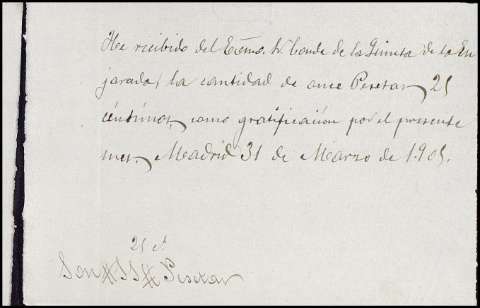 He recibido del Exmo. Sr. Conde de la Quinta de la En
jarada, la cantidad de once Pesetas 25
céntimos, como gratificación por el presente
mes. Madrid 31 de Marzo de 1905.
25 ct
Son # 11 # Pesetas